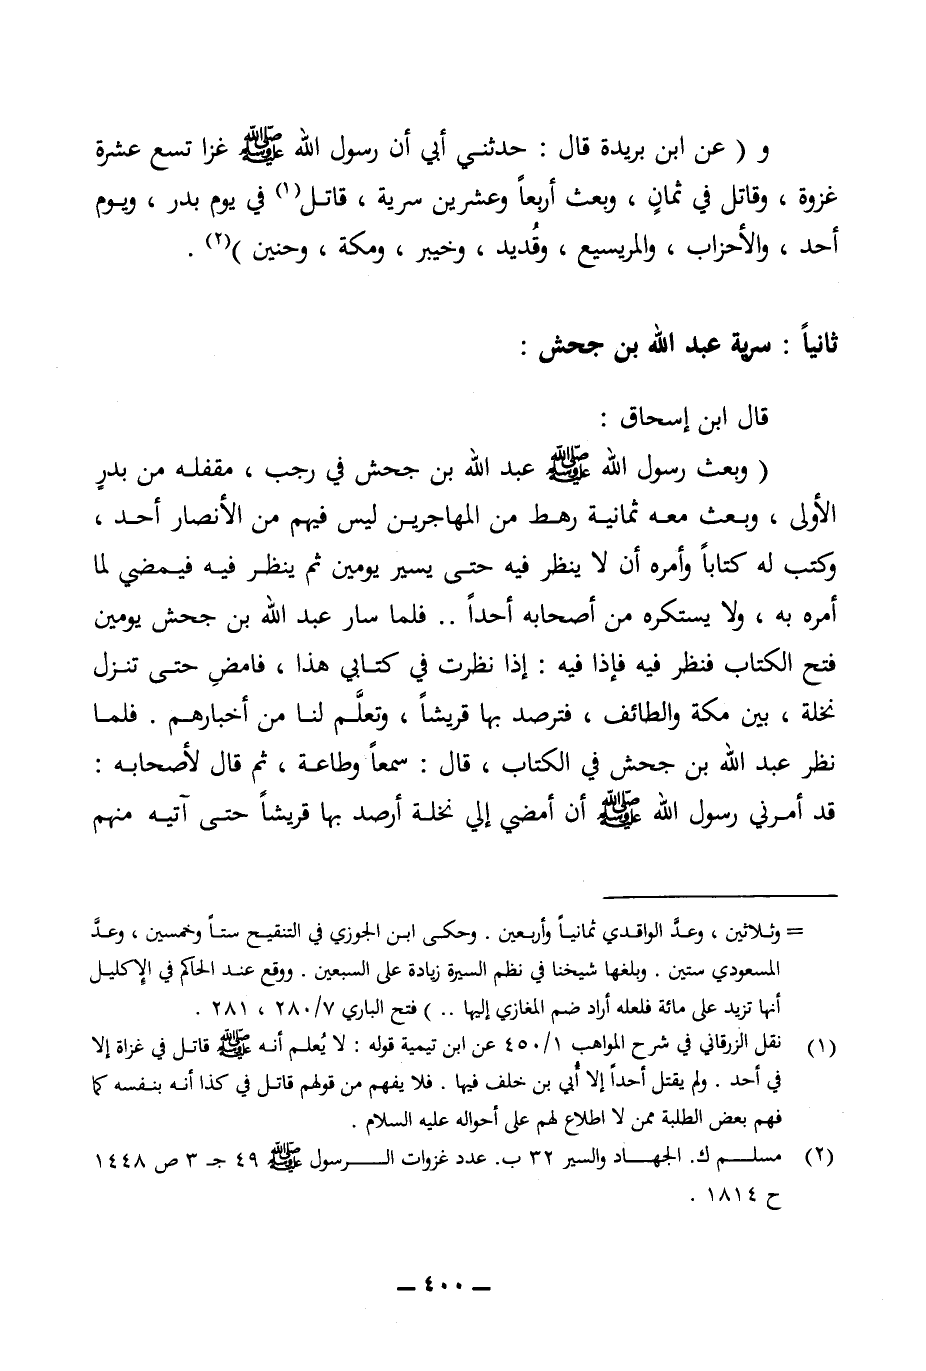 و ( عن ابن بريدة قال : حدثني أبي أن رسول الله ﷺ غزا تسع عشرة
غزوة ، وقاتل في ثمانٍ ، وبعث أربعاً وعشرين سرية ، قاتل(١) في يوم بدر ، ويوم
أحد ، والأحزاب ، والمريسيع ، وقُديد ، وخيبر ، ومكة ، وحنين )(٢) .
ثانياً : سرية عبد الله بن جحش :
قال ابن إسحاق :
( وبعث رسول الله ﷺ عبد الله بن جحش في رجب ، مقفله من بدرٍ
الأولى ، وبعث معه ثمانية رهط من المهاجرين ليس فيهم من الأنصار أحد ،
وكتب له كتاباً وأمره أن لا ينظر فيه حتى يسير يومين ثم ينظر فيه فيمضي لما
أمره به ، ولا يستكره من أصحابه أحداً .. فلما سار عبد الله بن جحش يومين
فتح الكتاب فنظر فيه فإذا فيه : إذا نظرت في كتابي هذا ، فامضِ حتى تنزل
نخلة ، بين مكة والطائف ، فترصد بها قريشاً ، وتعلَّم لنا من أخبارهم . فلما
نظر عبد الله بن جحش في الكتاب ، قال : سمعاً وطاعة ، ثم قال لأصحابه :
قد أمرني رسول الله ﷺ أن أمضي إلي نخلة أرصد بها قريشاً حتى آتيه منهم
= وثلاثين ، وعدَّ الواقدي ثمانياً وأربعين . وحكى ابن الجوزي في التنقيح ستاً وخمسين ، وعدَّ
المسعودي ستين . وبلغها شيخنا في نظم السيرة زيادة على السبعين . ووقع عند الحاكم في الإكليل
أنها تزيد على مائة فلعله أراد ضم المغازي إليها .. ) فتح الباري ٢٨٠/٧ ، ٢٨١ .
(١) نقل الزرقاني في شرح المواهب ٤٥٠/١ عن ابن تيمية قوله : لا يُعلم أنه ﷺ قاتل في غزاة إلا
في أحد . ولم يقتل أحداً إلا أُبي بن خلف فيها . فلا يفهم من قولهم قاتل في كذا أنه بنفسه كما
فهم بعض الطلبة ممن لا اطلاع لهم على أحواله عليه السلام .
(٢) مسلم ك. الجهاد والسير ٣٢ ب. عدد غزوات الرسول ﷺ ٤٩ جـ ٣ ص ١٤٤٨
ح ١٨١٤ .
— ٤٠٠ —